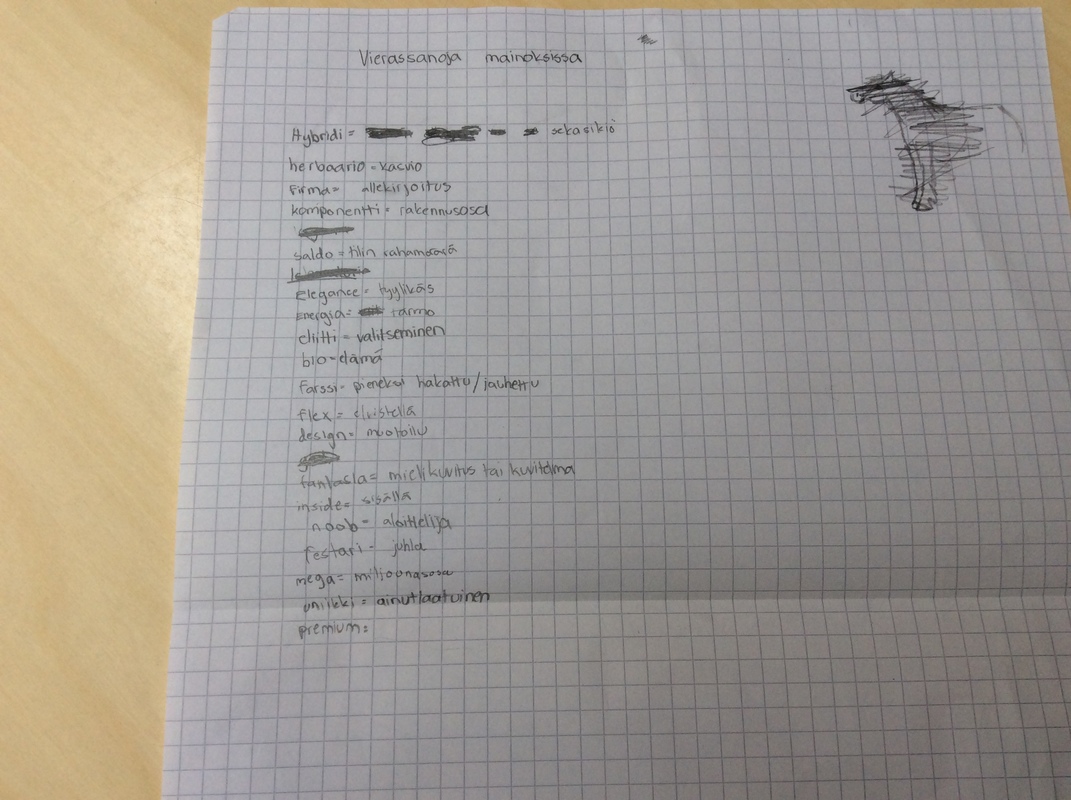 Vierassanoja mainoksissa
Hybridi = sekasikiö
herbaario = kasvio
firma = allekirjoitus
komponentti = rakennusosa
saldo = tilin rahamäärä
Elegance = tyylikäs
Energia = tarmo
eliitti = valitseminen
bio = elämä
Farssi = pieneksi hakattu/jauhettu
flex = elvistellä
design = muotoilu
fantasia = mielikuvitus tai kuvitelma
inside = sisällä
noob = aloittelija
festari = juhla
mega = miljoonasosa
uniikki = ainutlaatuinen
premium =